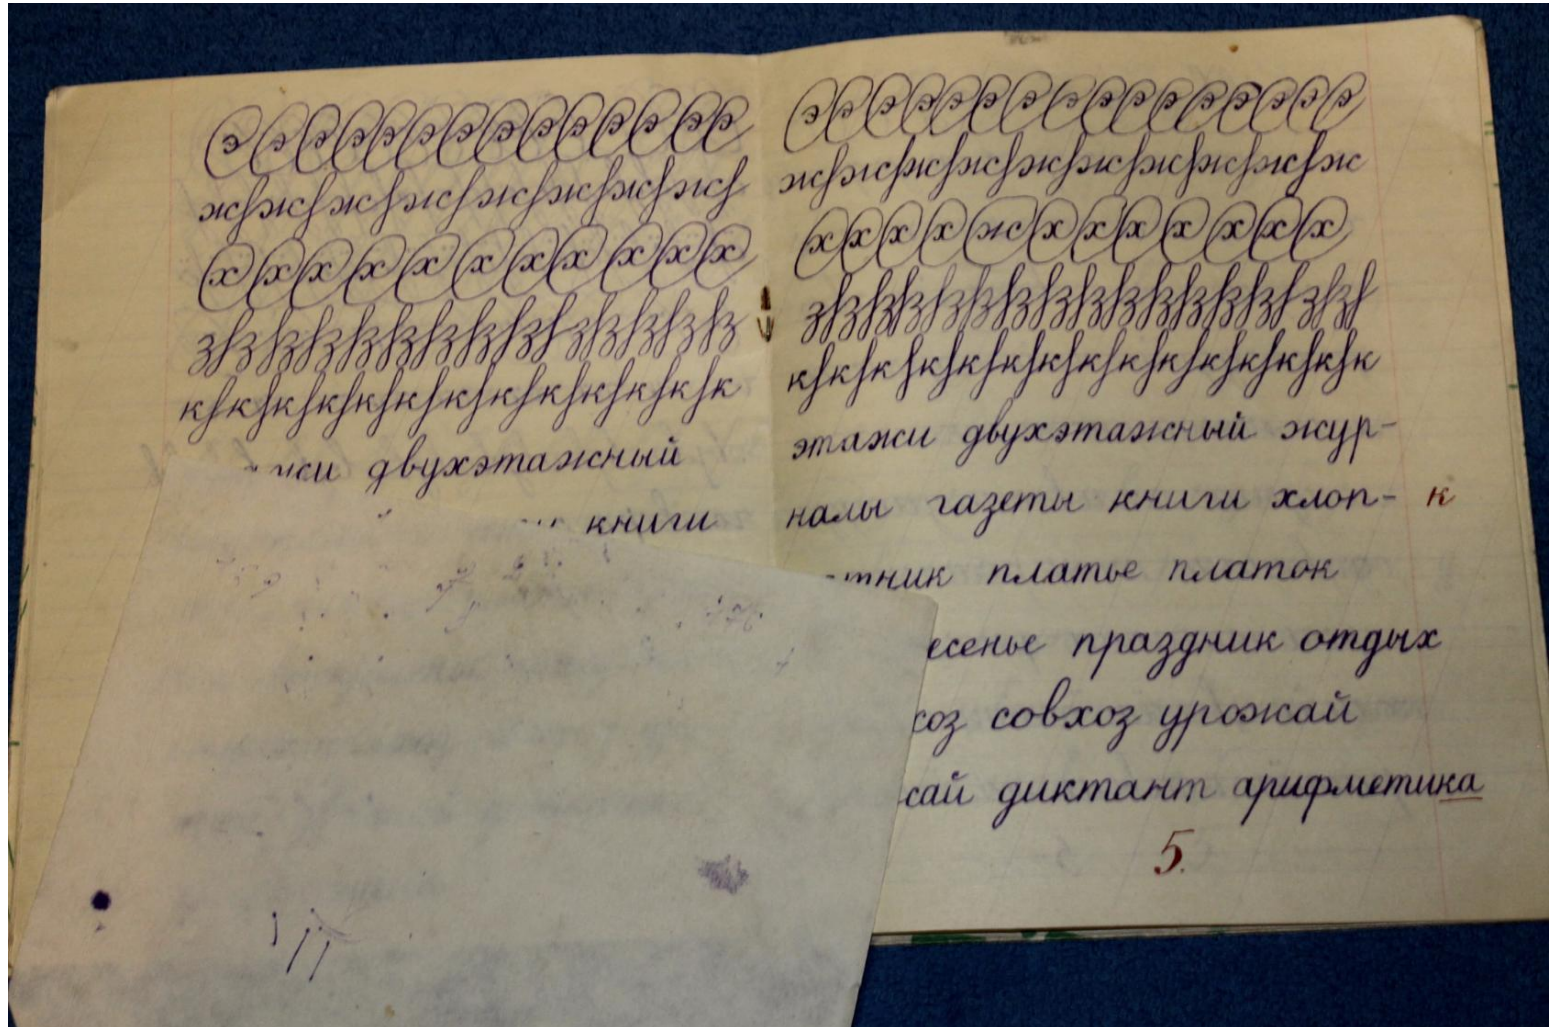 э э э э э э э э э э э э э э
ж ж ж ж ж ж ж ж
х х х х х х х х х х х
з з з з з з з з з з з з з з
к к к к к к к к к к к к к
жи двухэтажный
книги
э э э э э э э э э э э э э э э э
ж ж ж ж ж ж ж ж ж ж
х х х х ж х х х х х х х
з з з з з з з з з з з з з з з з
к к к к к к к к к к к к к к к
этажи двухэтажный жур-
налы газеты книги хлоп- к
тник платье платок
есенье праздник отдых
хоз совхоз урожай
жай диктант арифметика
5.